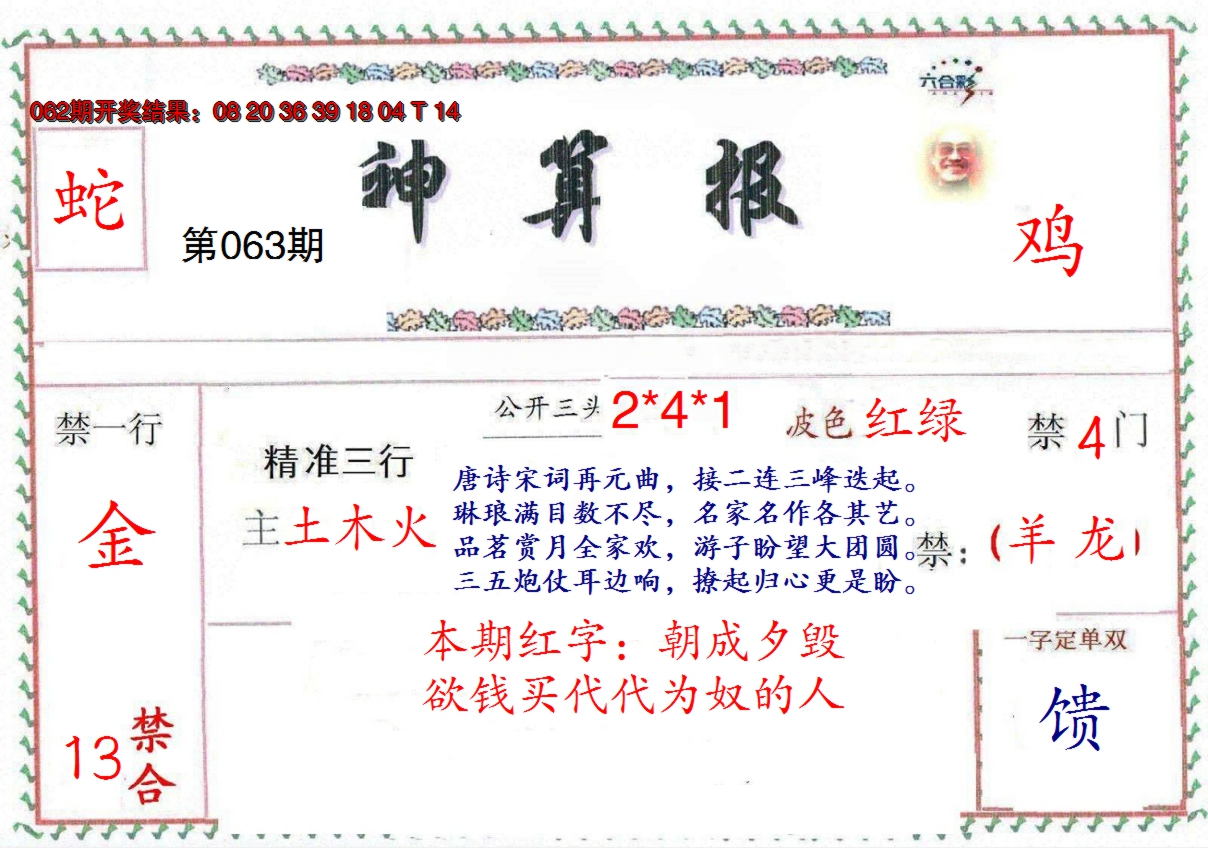 六合彩
062期开奖结果：08 20 36 39 18 04 T 14
神算报
蛇
第063期
鸡
禁一行
金
13禁合
公开三头 2*4*1
波色 红绿
禁4门
精准三行
主土木火
唐诗宋词再元曲，接二连三峰迭起。
琳琅满目数不尽，名家名作各其艺。
品茗赏月全家欢，游子盼望大团圆。
三五炮仗耳边响，撩起归心更是盼。
禁：（羊 龙）
本期红字：朝成夕毁
欲钱买代代为奴的人
一字定单双
馈